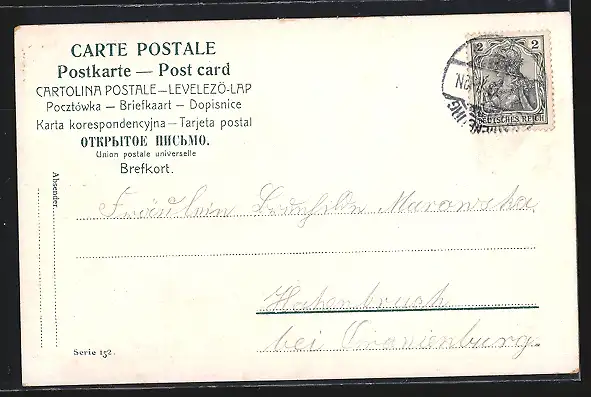 CARTE POSTALE
Postkarte — Post card
CARTOLINA POSTALE — LEVELEZÖ-LAP
Pocztówka — Briefkaart — Dopisnice
Karta korespondencyjna — Tarjeta postal
ОТКРЫТОЕ ПИСЬМО.
Union postale universelle
Brefkort.
2 2
DEUTSCHES REICH
Absender.
Fräulein
Hohenbruch
bei Oranienburg.
Serie 152.